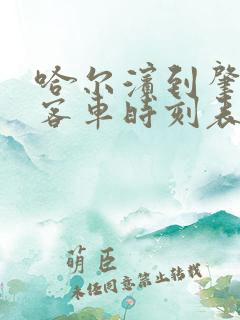 哈尔滨到肇
客车时刻表
萌臣
未经同意禁止转载